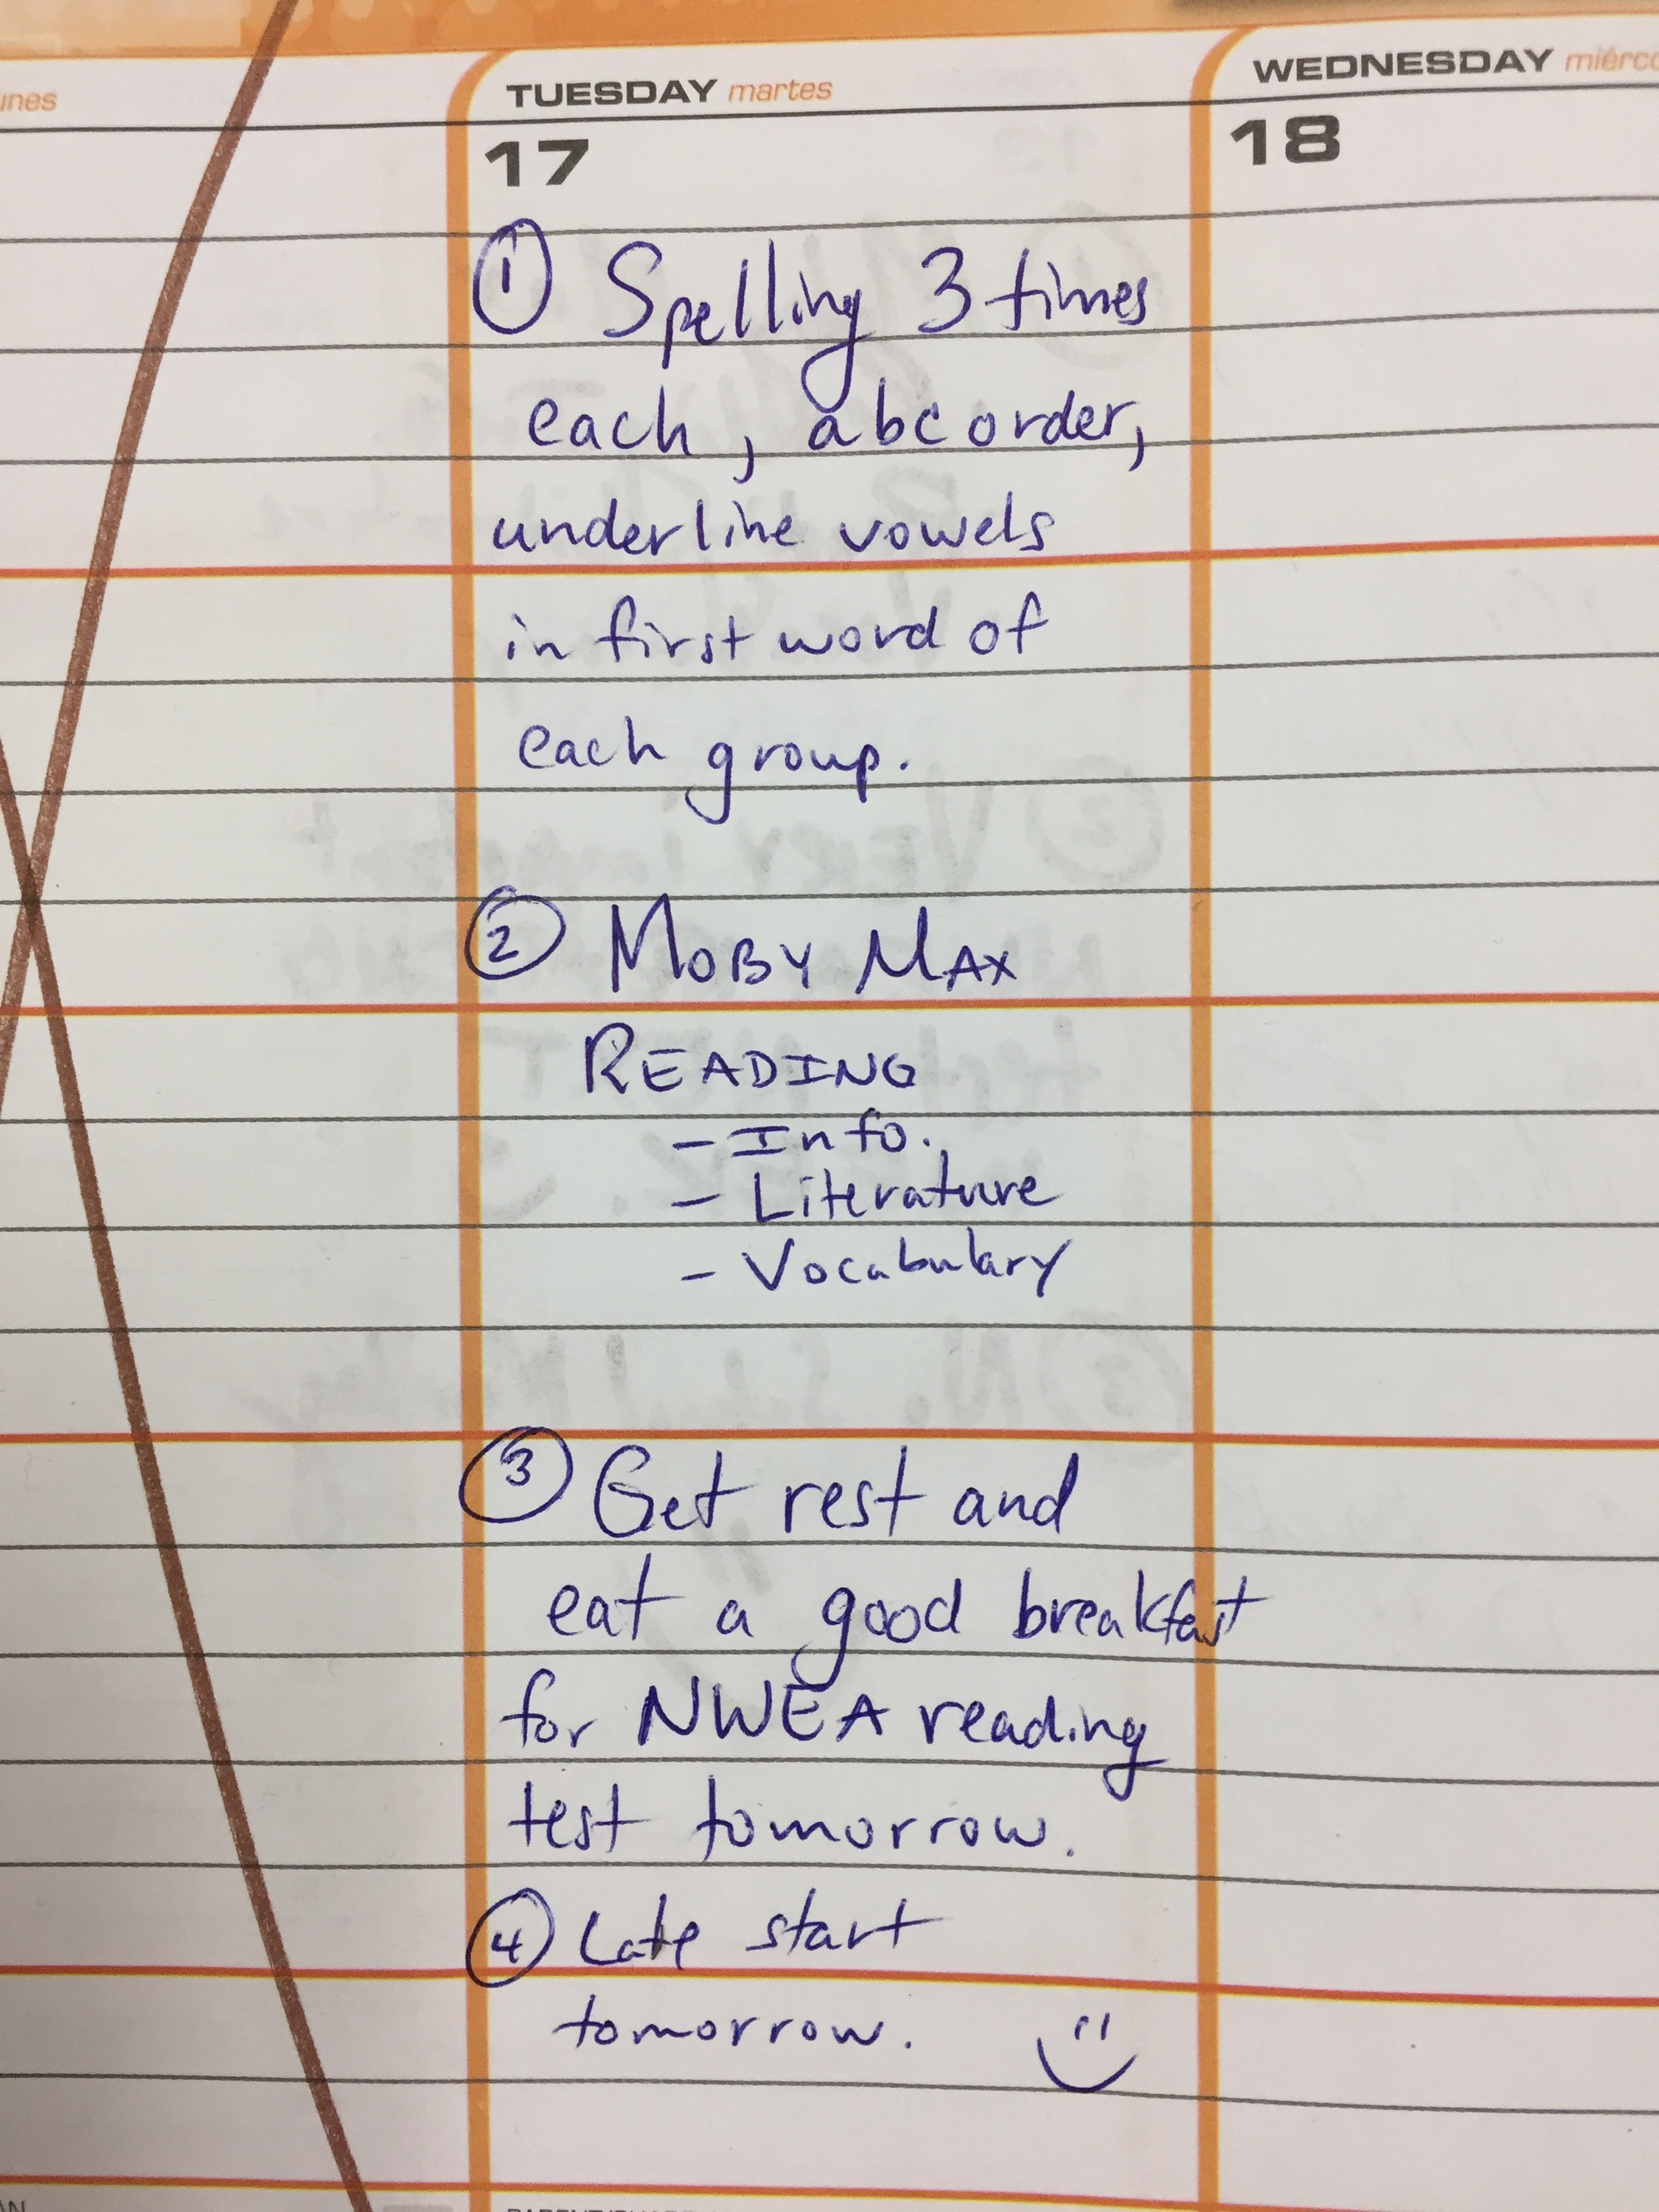 TUESDAY martes
WEDNESDAY
17
18
① Spelling 3 times
each, abc order,
underline vowels
in first word of
each group.
② MOBY MAX
READING
- Info.
- Literature
- Vocabulary
③ Get rest and
eat a good breakfast
for NWEA reading
test tomorrow.
④ Late start
tomorrow.